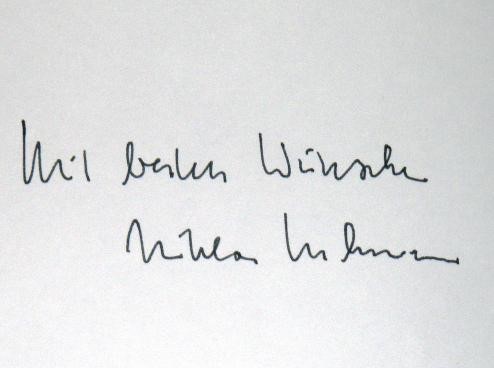 Mit besten Wünschen
Niklas Luhmann